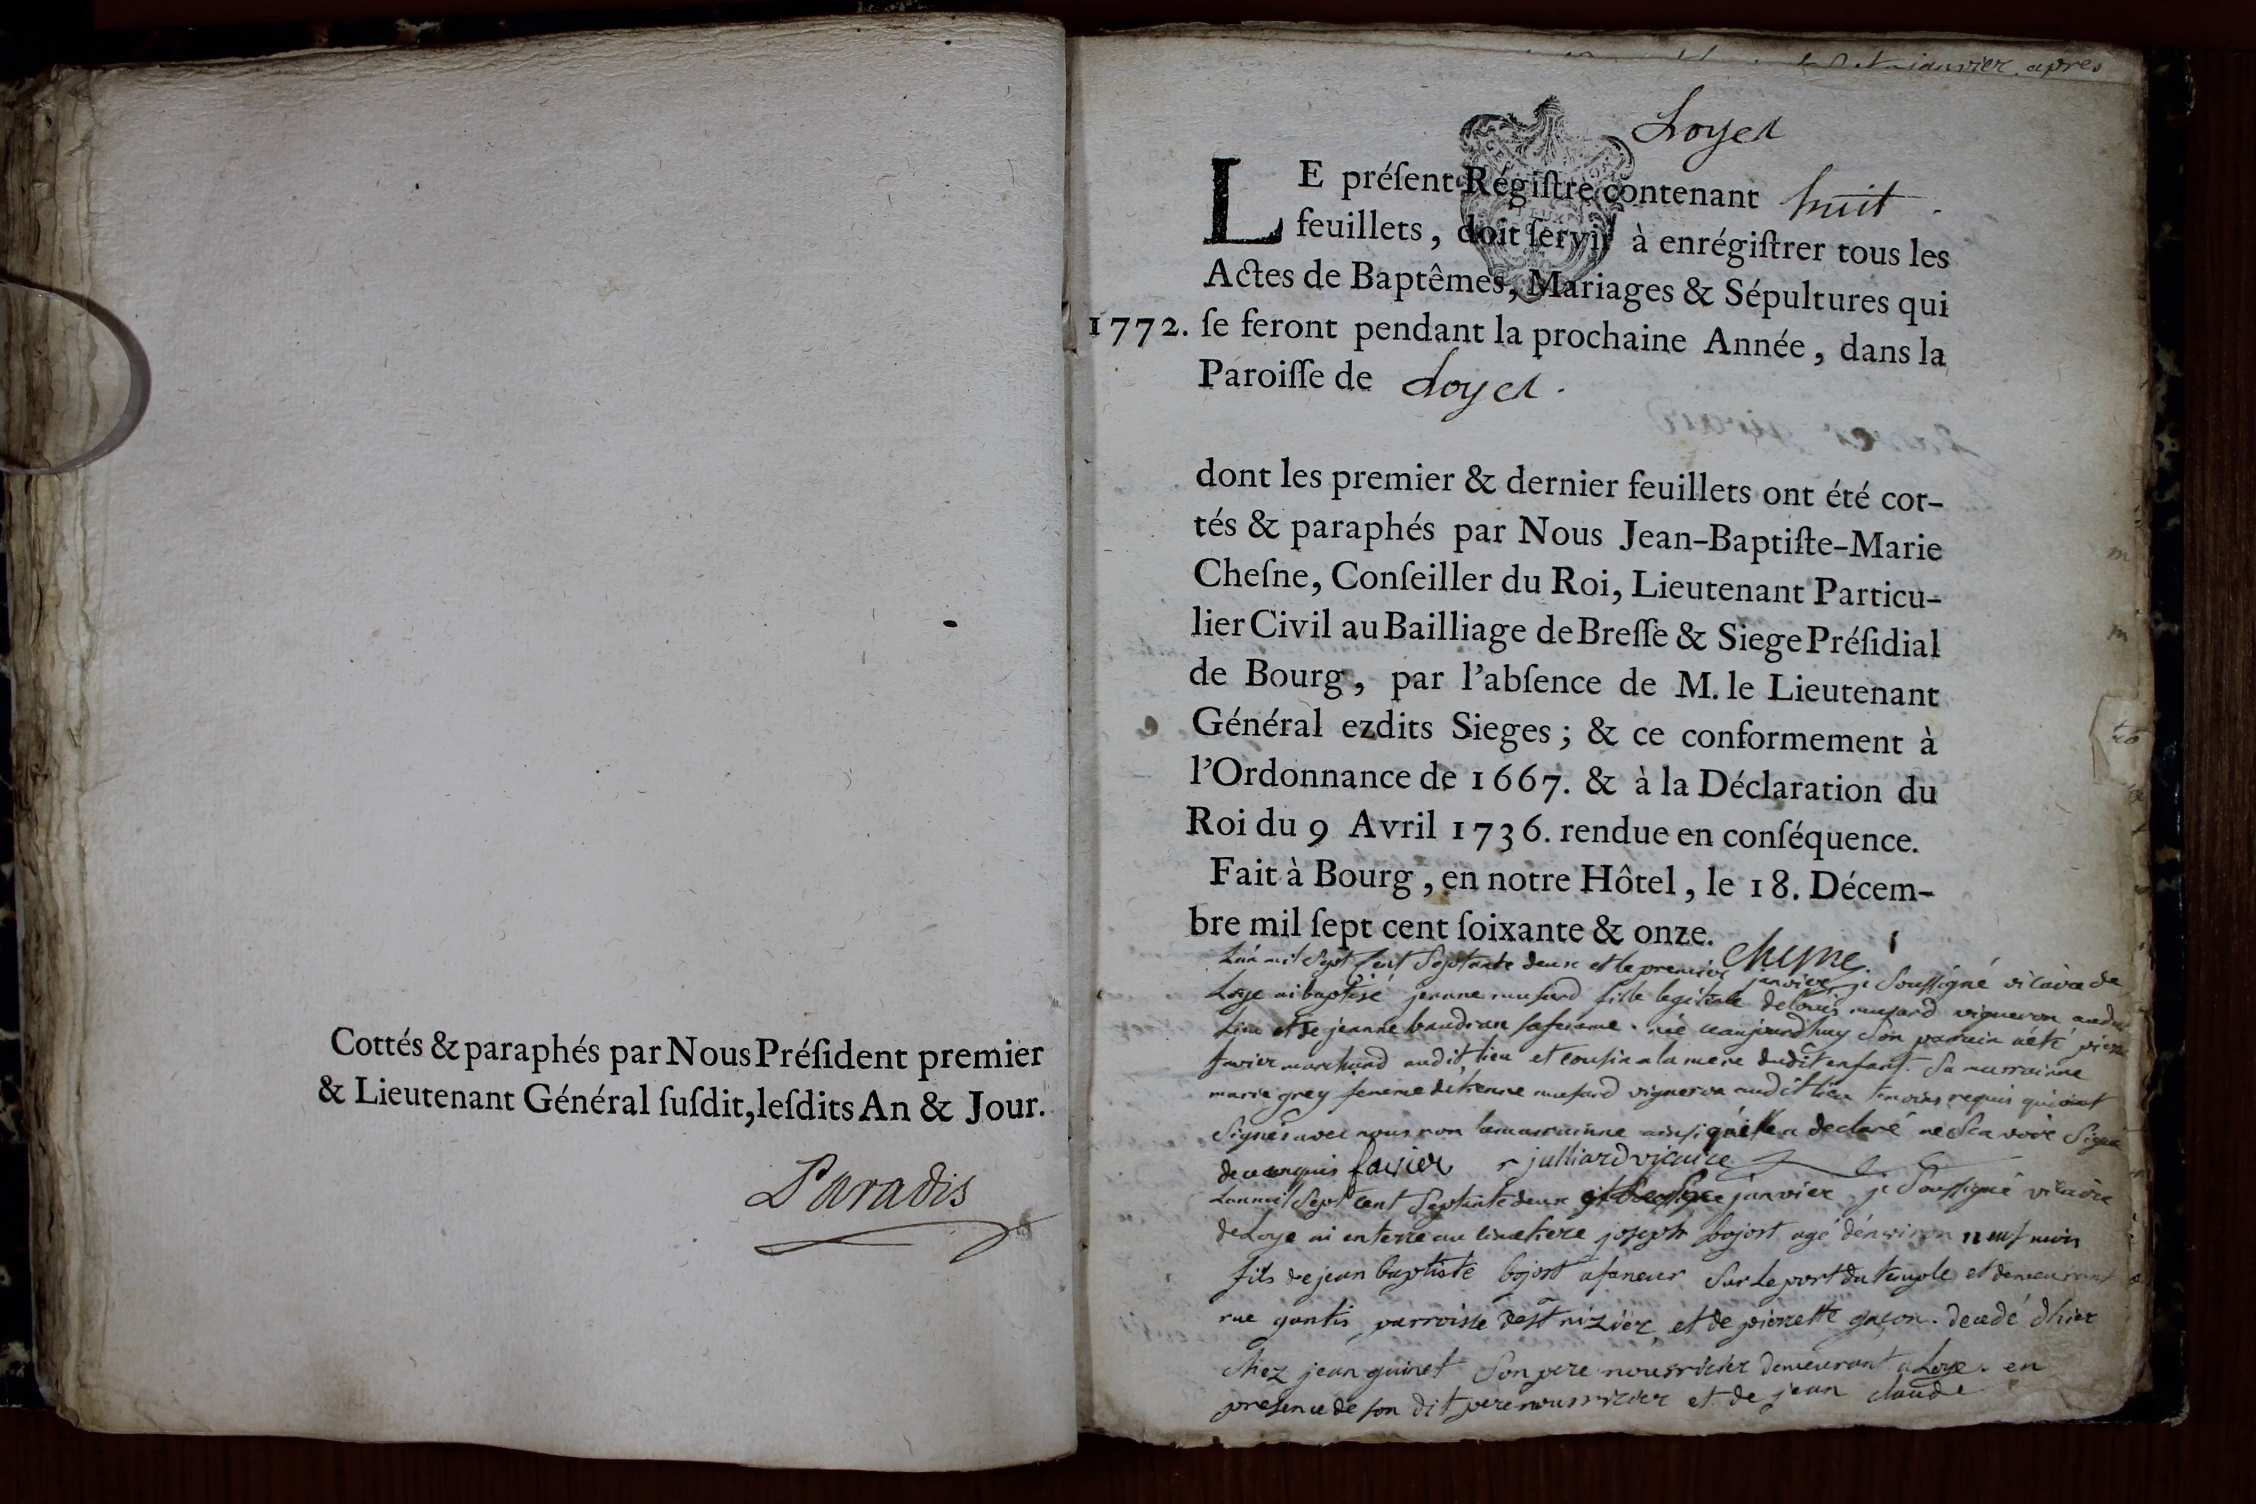 Cottés & paraphés par Nous Préſident premier
& Lieutenant Général ſuſdit, leſdits An & Jour.
Paradis
janvier apres
Loyes
LE préſent Régiſtre contenant huit
feuillets, doit ſervir à enrégiſtrer tous les
Actes de Baptêmes, Mariages & Sépultures qui
1772. ſe feront pendant la prochaine Année, dans la
Paroiſſe de Loyes.
dont les premier & dernier feuillets ont été cot-
tés & paraphés par Nous Jean-Baptiſte-Marie
Cheſne, Conſeiller du Roi, Lieutenant Particu-
lier Civil au Bailliage de Breſſe & Siege Préſidial
de Bourg, par l'abſence de M. le Lieutenant
Général ezdits Sieges; & ce conformement à
l'Ordonnance de 1667. & à la Déclaration du
Roi du 9 Avril 1736. rendue en conſéquence.
Fait à Bourg, en notre Hôtel, le 18. Décem-
bre mil ſept cent ſoixante & onze.
Chesne
L'an mil Sept Cent Septante deux et le premier janvier, je Soussigné vicaire de
Loye ai baptisé jeanne musard fille legitime de louis musard vigneron audit
Lieu et de jeanne baudran sa femme. née aujourdhuy Son parrain a été pierre
favier marchand audit lieu et cousin a la mere dudit enfant. Sa marrainne
marie grey femme detienne musard vigneron audit lieu temoins requis qui ont
Signés avec nous non la marrainne ainsi quelle a declaré ne Scavoir Signer
de ce enquis favier julliard vicaire
Lan mil Sept cent Septante deux janvier, je Soussigné vicaire
de Loye ai enterré au cimetiere joseph bojost agé d'environ neuf mois
fils de jean baptiste bojost afaneur Sur le port du temple et demeurant
rue gentis, parroisse de St nizier, et de pierrette gacon. decedé d'hier
chez jean guinet Son pere nourricier demeurant a Loye. en
presence de son dit pere nourricier et de jean claude